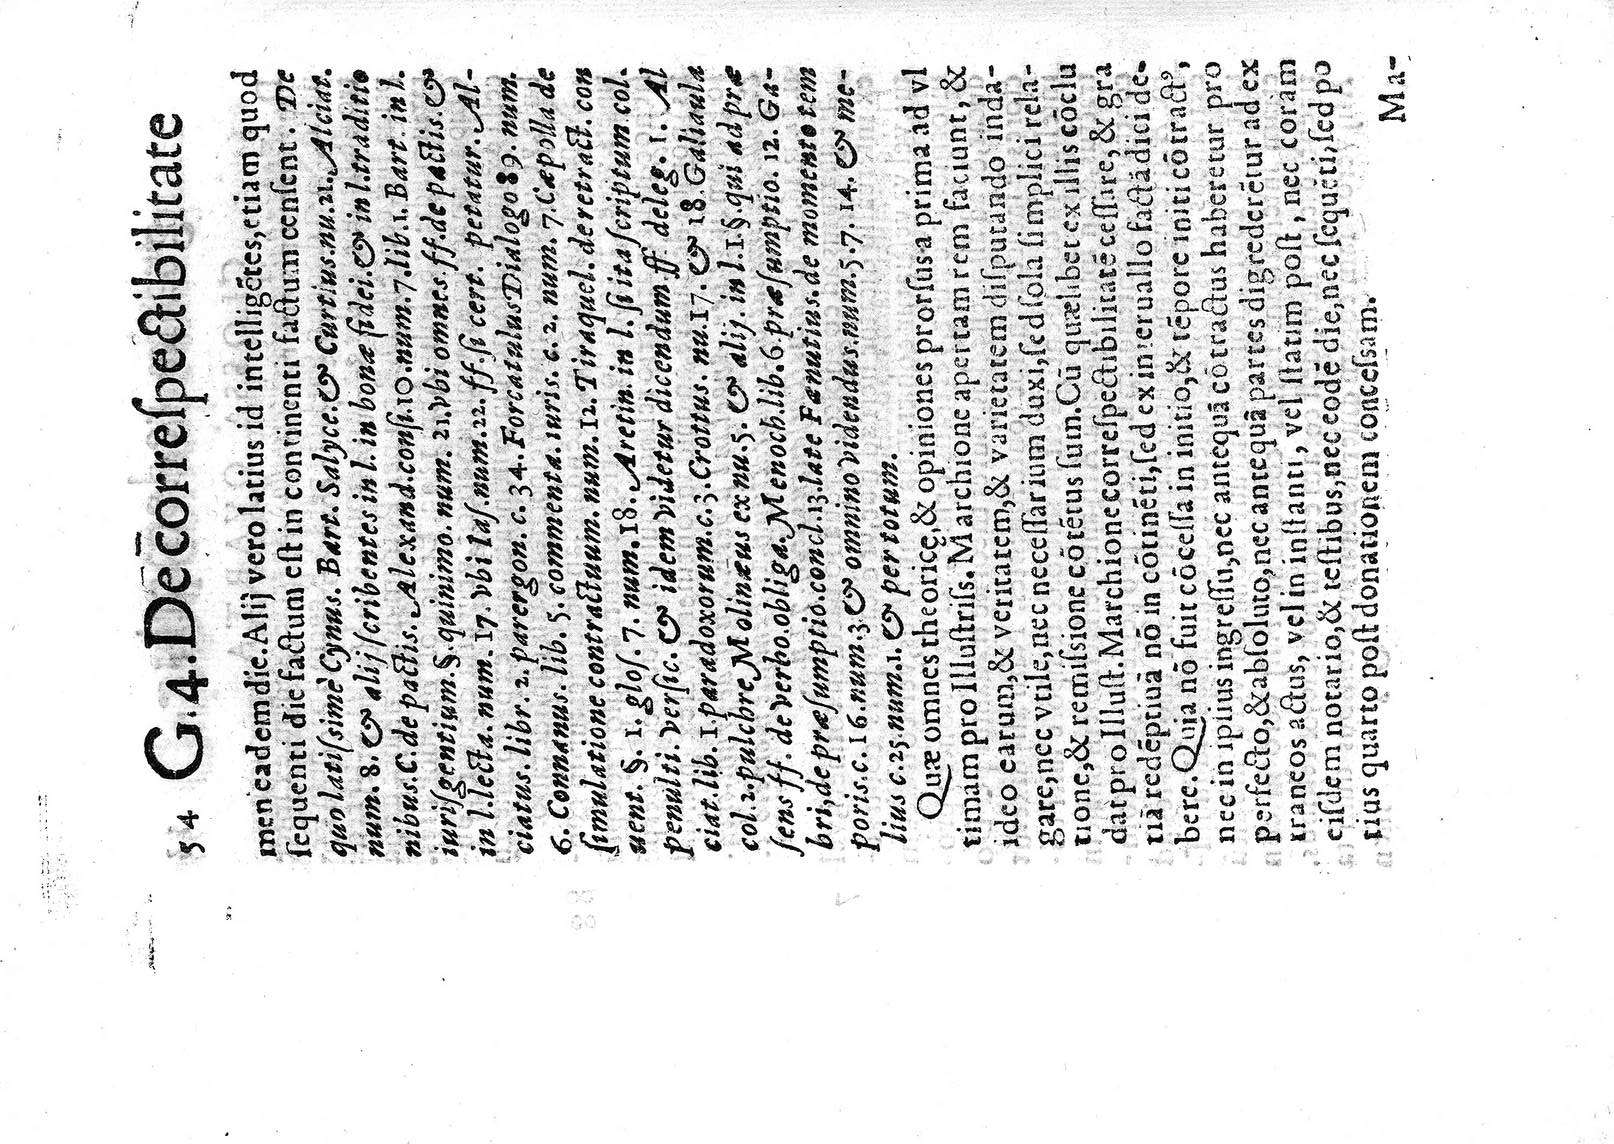 54 G.4. De correſpectibilitate
men eadem die. Alij vero latius id intelligētes, etiam quod
ſequenti die factum eſt in continenti factum cenſent. De
quo latiſsimè Cynus. Bart. Salyce. & Curtius. nu. 21. Alciat.
num. 8. & alij ſcribentes in l. in bonæ fidei. & in l. traditio
nibus. C. de pactis. Alexand. conſi. 10. num. 7. lib. 1. Bart. in l.
iuriſgentium. §. quinimo. num. 21. vbi omnes. ff. de pactis. &
in l. lecta. num. 17. vbi Iaſ. num. 22. ff. ſi cert. petatur. Al-
ciatus. libr. 2. parergon. c. 34. Forcatulus Dialogo 89. num.
6. Connanus. lib. 5. commenta. iuris. c. 2. num. 7. Cæpolla de
ſimulatione contractuum. num. 12. Tiraquel. de retract. con
uent. §. 1. gloſ. 7. num. 18. Arein. in l. ſi ita ſcriptum. col.
penulti. verſic. & idem videtur dicendum ff deleg. 1. Al
ciat. lib. 1. paradoxorum. c. 3. Crottus. nu. 17. & 18. Galiaula
col. 2. pulchre Molinæus ex nu. 5. & alij. in l. 1. § qui ad præ
ſens ff. de verbo. obliga. Menoch. lib. 6. præſumptio. 12. Ga-
bri, de præſumptio. concl. 13. late Fanutius. de momento tem
poris. c. 16. num. 3. & omnino videndus. num. 5. 7. 14. & me-
lius c. 25. num. 1. & per totum.
Quæ omnes theoricę, & opiniones prorſus a prima ad vl
timam pro Illuſtriſs. Marchione apertam rem faciunt, &
ideo earum, & veritatem, & varietatem diſputando inda-
gare, nec vtile, nec neceſſarium duxi, ſed ſola ſimplici rela-
tione, & remiſsione cōtētus ſum. Cū quælibet ex illis cōclu
dat pro Illuſt. Marchione correſpectibilitatē ceſſare, & gra
tiā redēptiuā nō in cōtinēti, ſed ex interuallo factā dici de-
bere. Quia nō fuit cōceſſa in initio, & tēpore initi cōtractꝰ,
nec in ipſius ingreſſu, nec antequā cōtractus haberetur pro
perfecto, & abſoluto, nec antequā partes digrederētur ad ex
traneos actus, vel in inſtanti, vel ſtatim poſt, nec coram
eiſdem notario, & teſtibus, nec eodē die, nec ſequēti, ſed po
tius quarto poſt donationem conceſsam.
Ma-